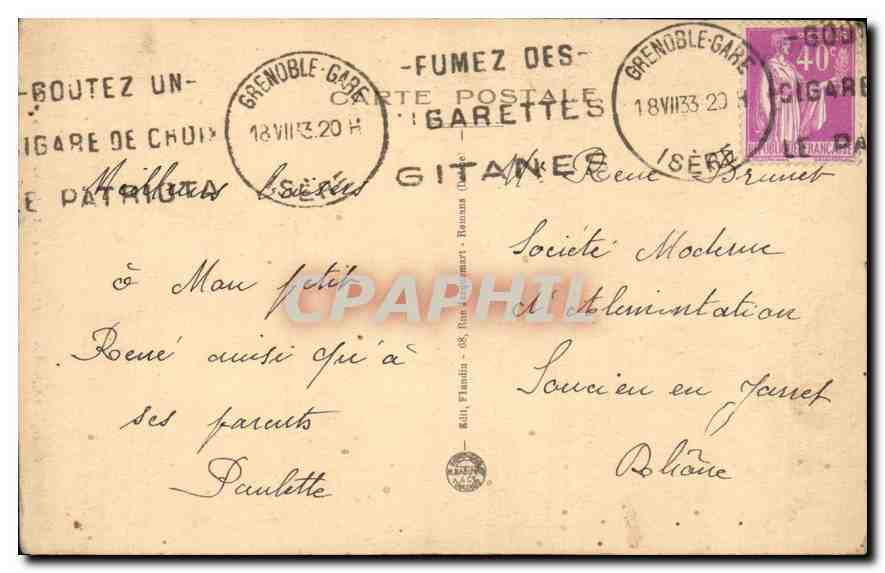 -GOUTEZ UN-
IGARE DE CHOIX
LE PATRIOTA
GRENOBLE-GARE
18 VII 33.20 H
ISÈRE
-FUMEZ DES-
IGARETTES
GITANES
CARTE POSTALE
GRENOBLE-GARE
18 VII 33-20 H
ISÈRE
-GOUT
CIGARE
LE PA
40c
REPUBLIQUE FRANÇAISE
Meilleurs baisers
à Mon petit
René ainsi qu'à
ses parents
Paulette
Mr René Brunet
Société Moderne
d'Alimentation
Soucieu en Jarret
Rhône
Edit, Flandin - 68, Rue Jacquemart - Romans
CPAPHIL